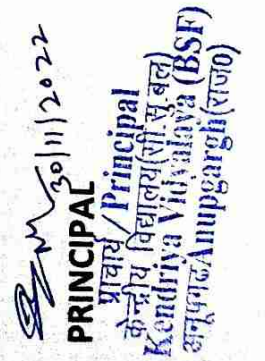 30/11/2022
PRINCIPAL
प्राचार्य/Principal
केन्द्रीय विद्यालय(सी.सु.बल)
Kendriya Vidyalaya (BSF)
अनूपगढ़Anupgargh(राज0)